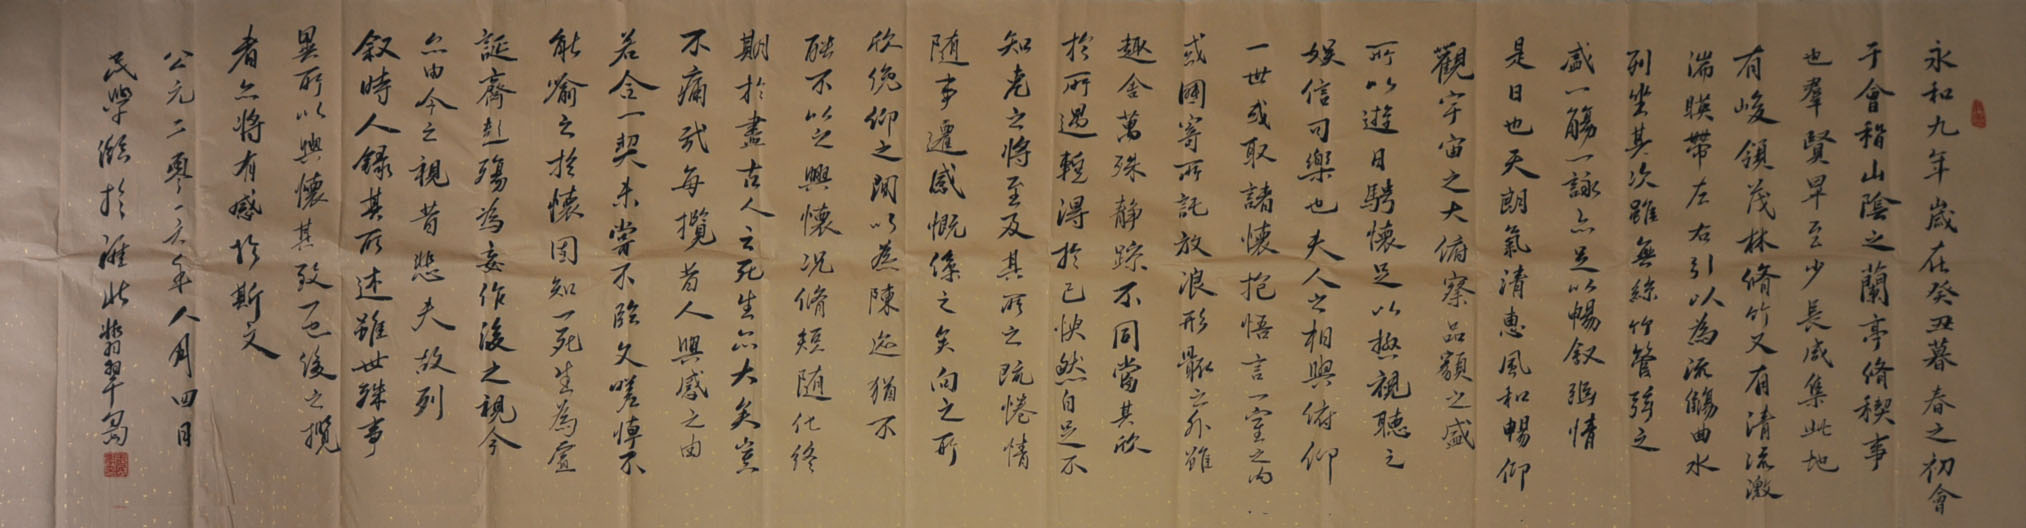 永和九年歲在癸丑暮春之初會
于會稽山陰之蘭亭脩稧事
也羣賢畢至少長咸集此地
有峻領茂林脩竹又有清流激
湍暎帶左右引以為流觴曲水
列坐其次雖無絲竹管弦之
盛一觴一詠亦足以暢叙幽情
是日也天朗氣清惠風和暢仰
觀宇宙之大俯察品類之盛
所以遊目騁懷足以極視聽之
娛信可樂也夫人之相與俯仰
一世或取諸懷抱悟言一室之內
或因寄所託放浪形骸之外雖
趣舍萬殊静躁不同當其欣
於所遇暫得於己怏然自足不
知老之將至及其所之既惓情
随事遷感慨係之矣向之所
欣俛仰之閒以為陳迹猶不
能不以之興懷況脩短随化終
期於盡古人云死生亦大矣豈
不痛哉每攬昔人興感之由
若合一契未嘗不臨文嗟悼不
能喻之於懷固知一死生為虛
誕齊彭殤為妄作後之視今
亦由今之視昔悲夫故列
叙時人錄其所述雖世殊事
異所以興懷其致一也後之攬
者亦將有感於斯文
公元二零一六年八月四日
民學 於 翡翠島